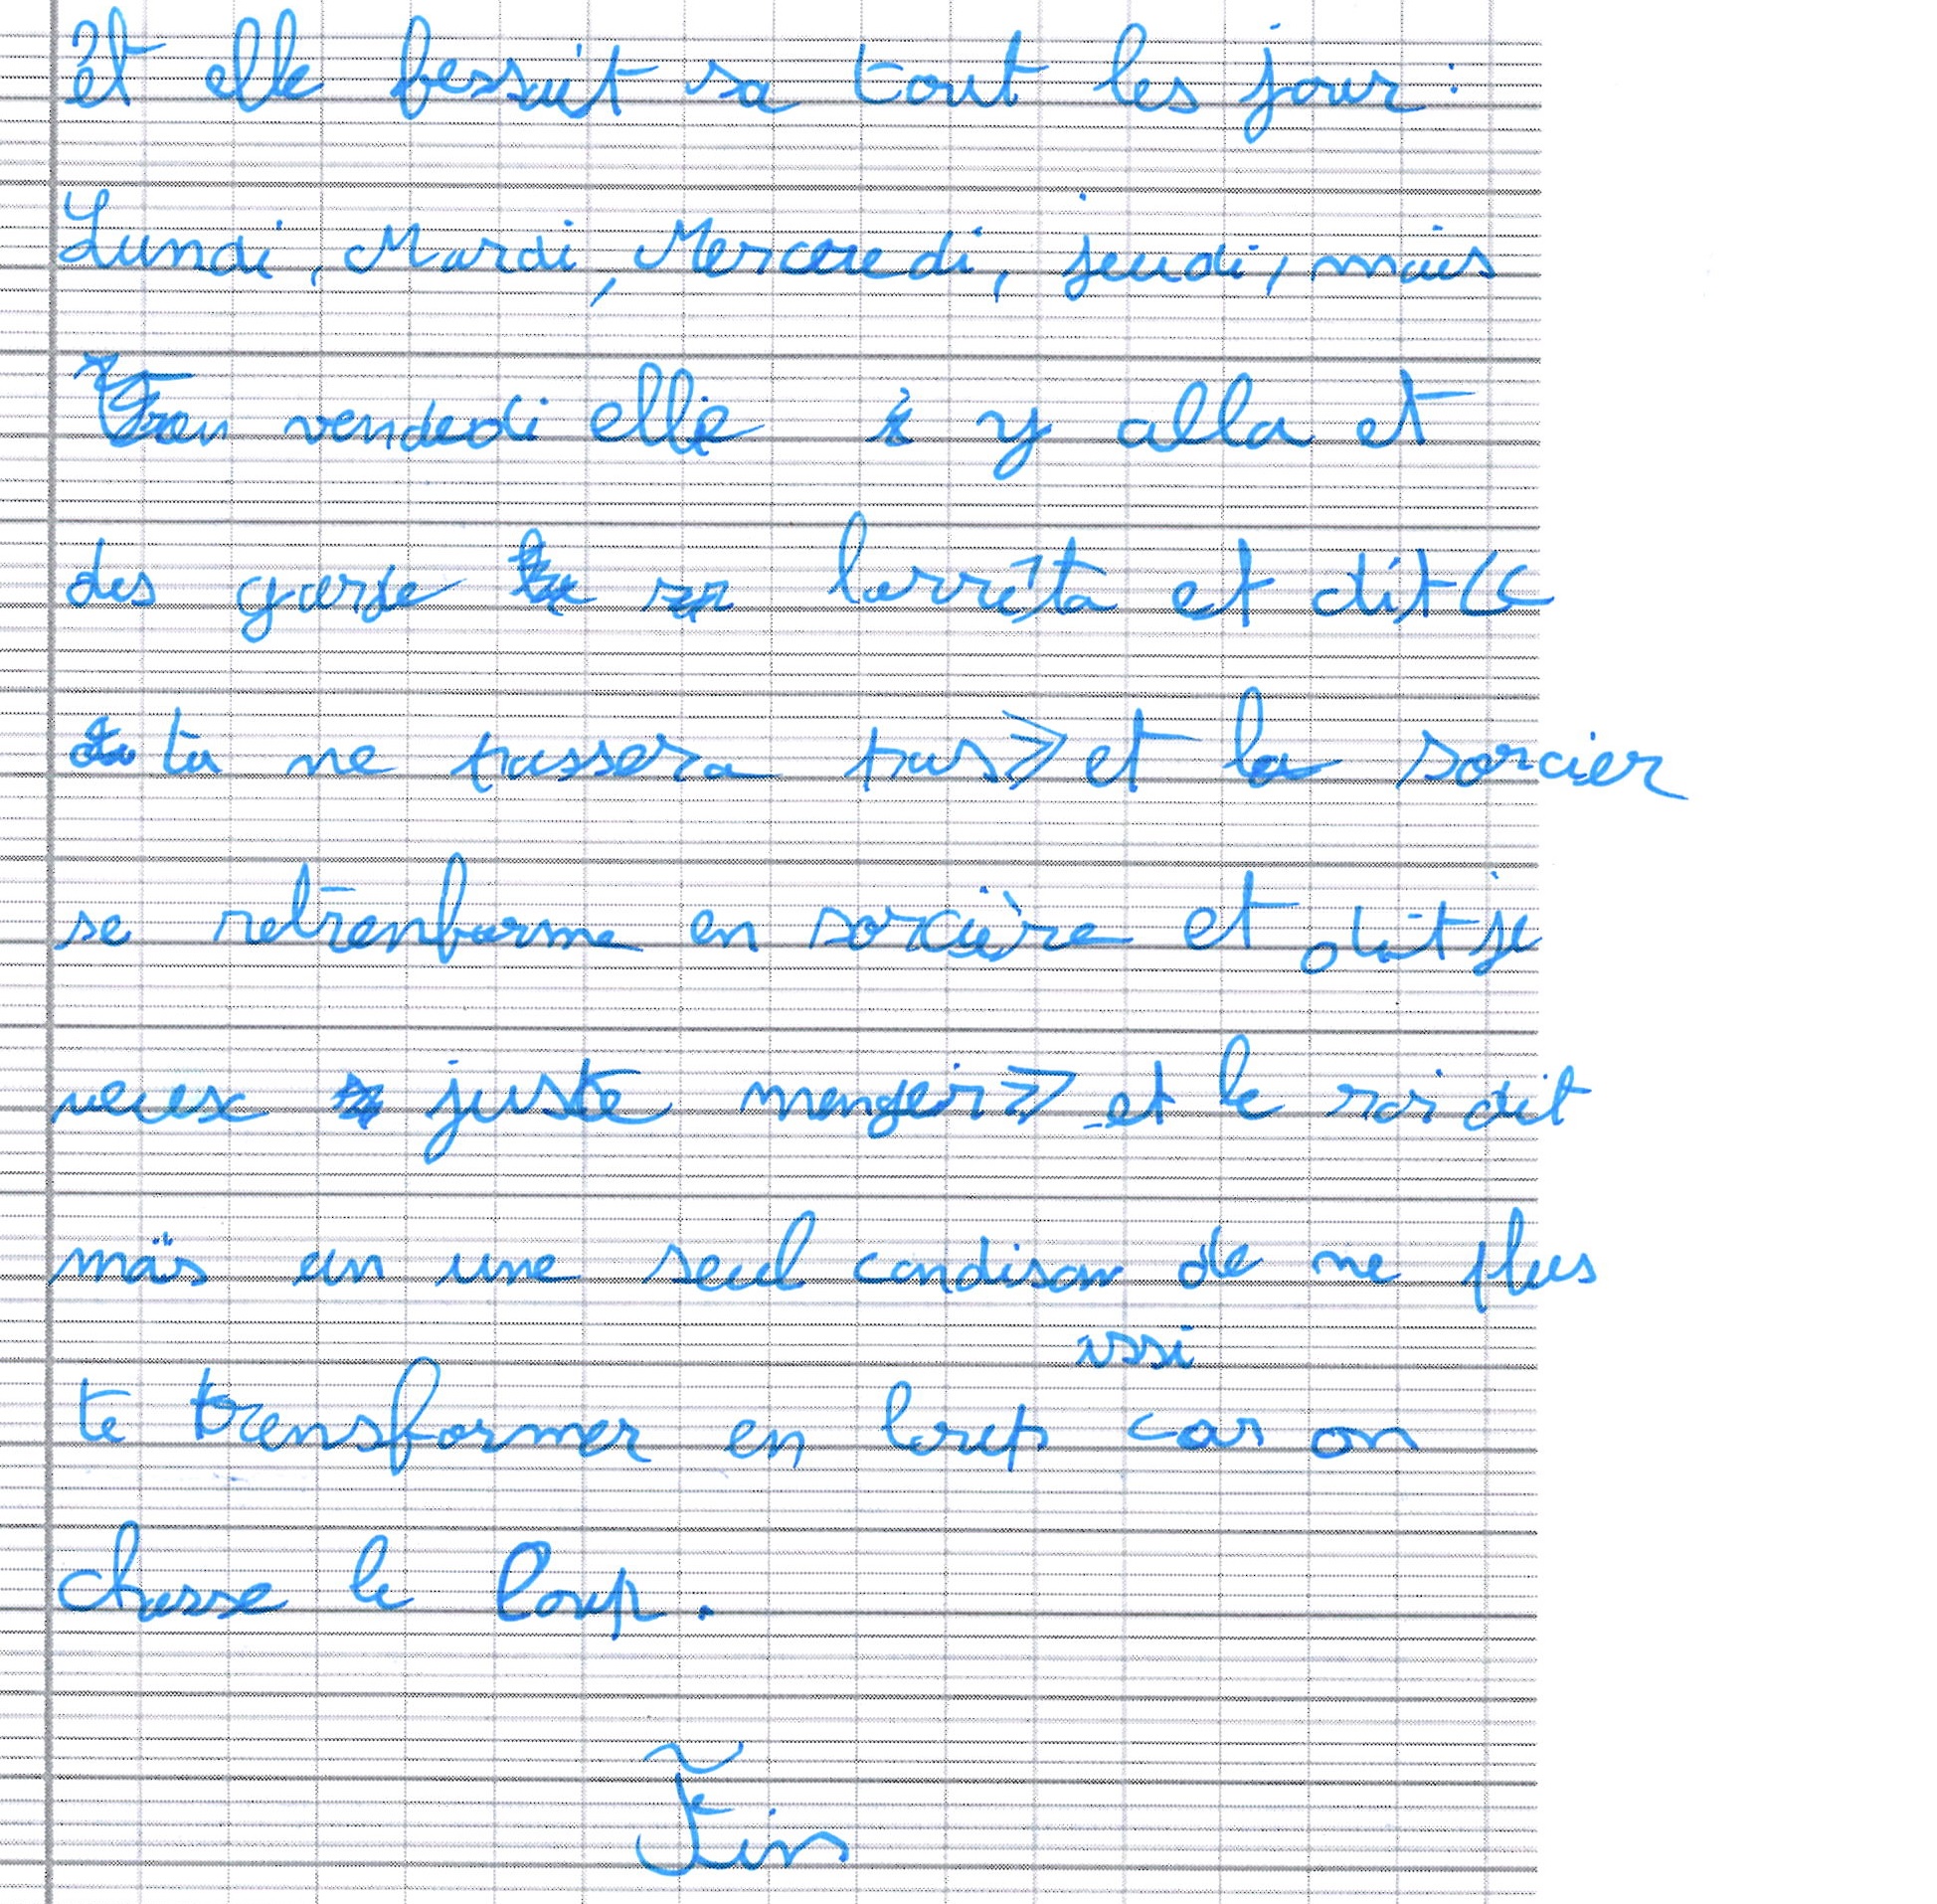 et elle fessait sa tout les jour :
Lundi, Mardi, Mercredi, jeudi, mais
en vendedi elle y alla et
des garse larrêta et dit «
tu ne passera pas » et la sorcier
se retrenforme en sorcière et dit je
veux juste menger » et le roi dit
mais un une seul condison de ne plus
issi
te trensformer en loup car on
chasse le loup.
Fin